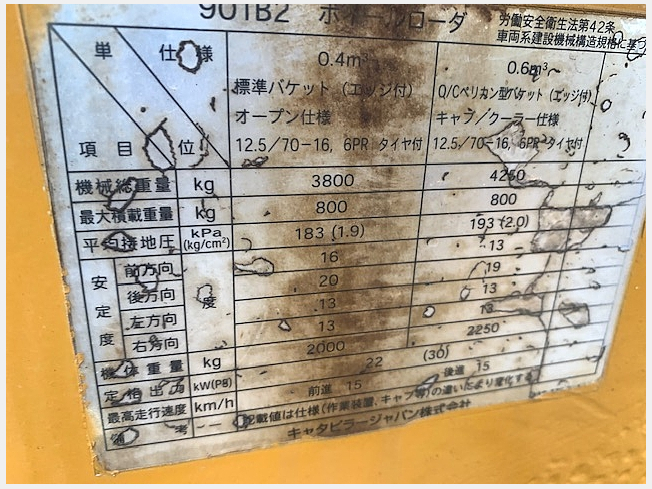 901B2 ホイールローダ
労働安全衛生法第42条
車両系建設機械構造規格に基づ
単 仕様
0.4m³ 0.6m³
標準バケット（エッジ付） Q/Cペリカン型バケット（エッジ付）
オープン仕様 キャブ／クーラー仕様
項目 位 12.5／70−16, 6PR タイヤ付 12.5／70−16, 6PR タイヤ付
機械総重量 kg 3800 4250
最大積載重量 kg 800 800
平均接地圧 kPa (kg/cm²) 183 (1.9) 193 (2.0)
安定度 前方向 度 16 13
後方向 20 19
左方向 13 13
右方向 13 13
機体重量 kg 2000 2250
定格出力 kW(PS) 22 (30)
最高走行速度 km/h 前進 15 後進 15
備考 −− 記載値は仕様（作業装置、キャブ等）の違いにより変化する
キャタピラージャパン株式会社